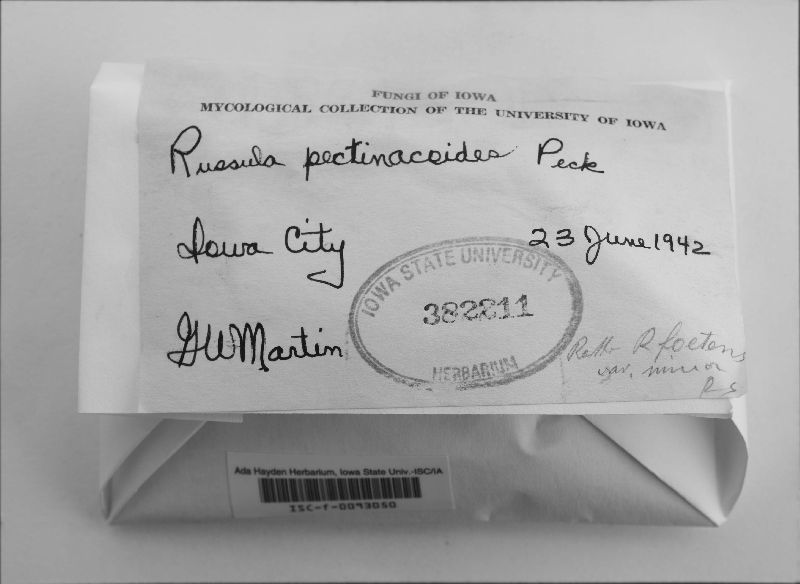 FUNGI OF IOWA
MYCOLOGICAL COLLECTION OF THE UNIVERSITY OF IOWA
Russula pectinacoides Peck
Iowa City
23 June 1942
IOWA STATE UNIVERSITY
382811
HERBARIUM
G W Martin
R foetens
var. minor
Ada Hayden Herbarium, Iowa State Univ.-ISC/IA
ISC-f-0093050